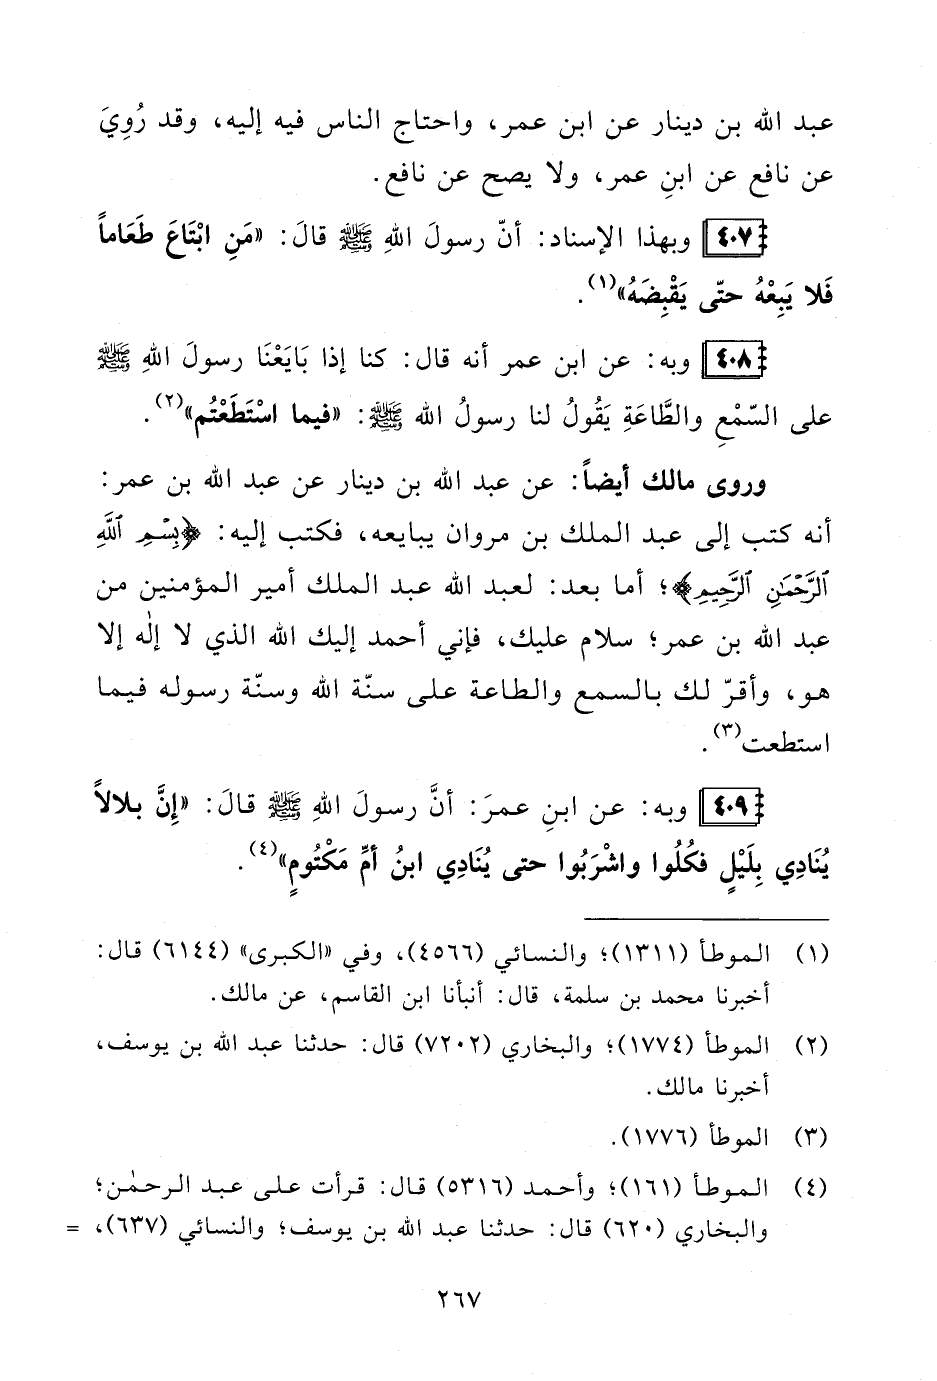 عبد الله بن دينار عن ابن عمر، واحتاج الناس فيه إليه، وقد رُوِيَ
عن نافع عن ابنِ عمر، ولا يصح عن نافع.
٤٠٧ وبهذا الإسناد: أنّ رسولَ اللهِ ﷺ قالَ: «مَنِ ابْتَاعَ طَعَاماً
فَلا يَبِعْهُ حتّى يَقْبِضَهُ»(١).
٤٠٨ وبه: عن ابن عمر أنه قال: كنا إذا بَايَعْنَا رسولَ اللهِ ﷺ
على السّمْعِ والطَّاعَةِ يَقُولُ لنا رسولُ الله ﷺ: «فيما اسْتَطَعْتُم»(٢).
وروى مالك أيضاً: عن عبد الله بن دينار عن عبد الله بن عمر:
أنه كتب إلى عبد الملك بن مروان يبايعه، فكتب إليه: ﴿بِسْمِ ٱللَّهِ
ٱلرَّحْمَٰنِ ٱلرَّحِيمِ﴾؛ أما بعد: لعبد الله عبد الملك أمير المؤمنين من
عبد الله بن عمر؛ سلام عليك، فإني أحمد إليك الله الذي لا إلٰه إلا
هو، وأقرّ لك بالسمع والطاعة على سنّة الله وسنّة رسوله فيما
استطعت(٣).
٤٠٩ وبه: عن ابنِ عمرَ: أنَّ رسولَ اللهِ ﷺ قالَ: «إِنَّ بلالاً
يُنَادِي بِلَيْلٍ فكُلُوا واشْرَبُوا حتى يُنَادِي ابنُ أمِّ مَكْتُومٍ»(٤).
(١) الموطأ (١٣١١)؛ والنسائي (٤٥٦٦)، وفي «الكبرى» (٦١٤٤) قال:
أخبرنا محمد بن سلمة، قال: أنبأنا ابن القاسم، عن مالك.
(٢) الموطأ (١٧٧٤)؛ والبخاري (٧٢٠٢) قال: حدثنا عبد الله بن يوسف،
أخبرنا مالك.
(٣) الموطأ (١٧٧٦).
(٤) الموطأ (١٦١)؛ وأحمد (٥٣١٦) قال: قرأت على عبد الرحمٰن؛
والبخاري (٦٢٠) قال: حدثنا عبد الله بن يوسف؛ والنسائي (٦٣٧)، =
٢٦٧